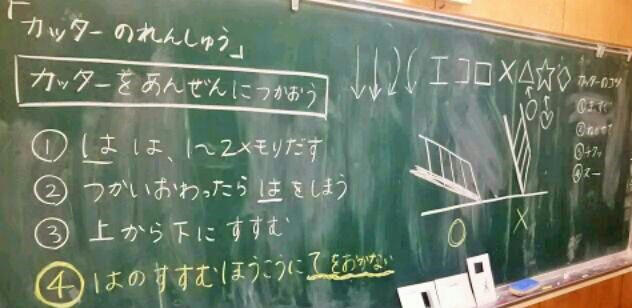 「カッターのれんしゅう」
カッターをあんぜんにつかおう
① はは、1〜2メモリだす
② つかいおわったらはをしまう
③ 上から下にすすむ
④ はのすすむほうこうにてをおかない
エコロ×△☆◇
○ ×
カッターのコツ
① まっすぐ
② ねかせて
④ スー